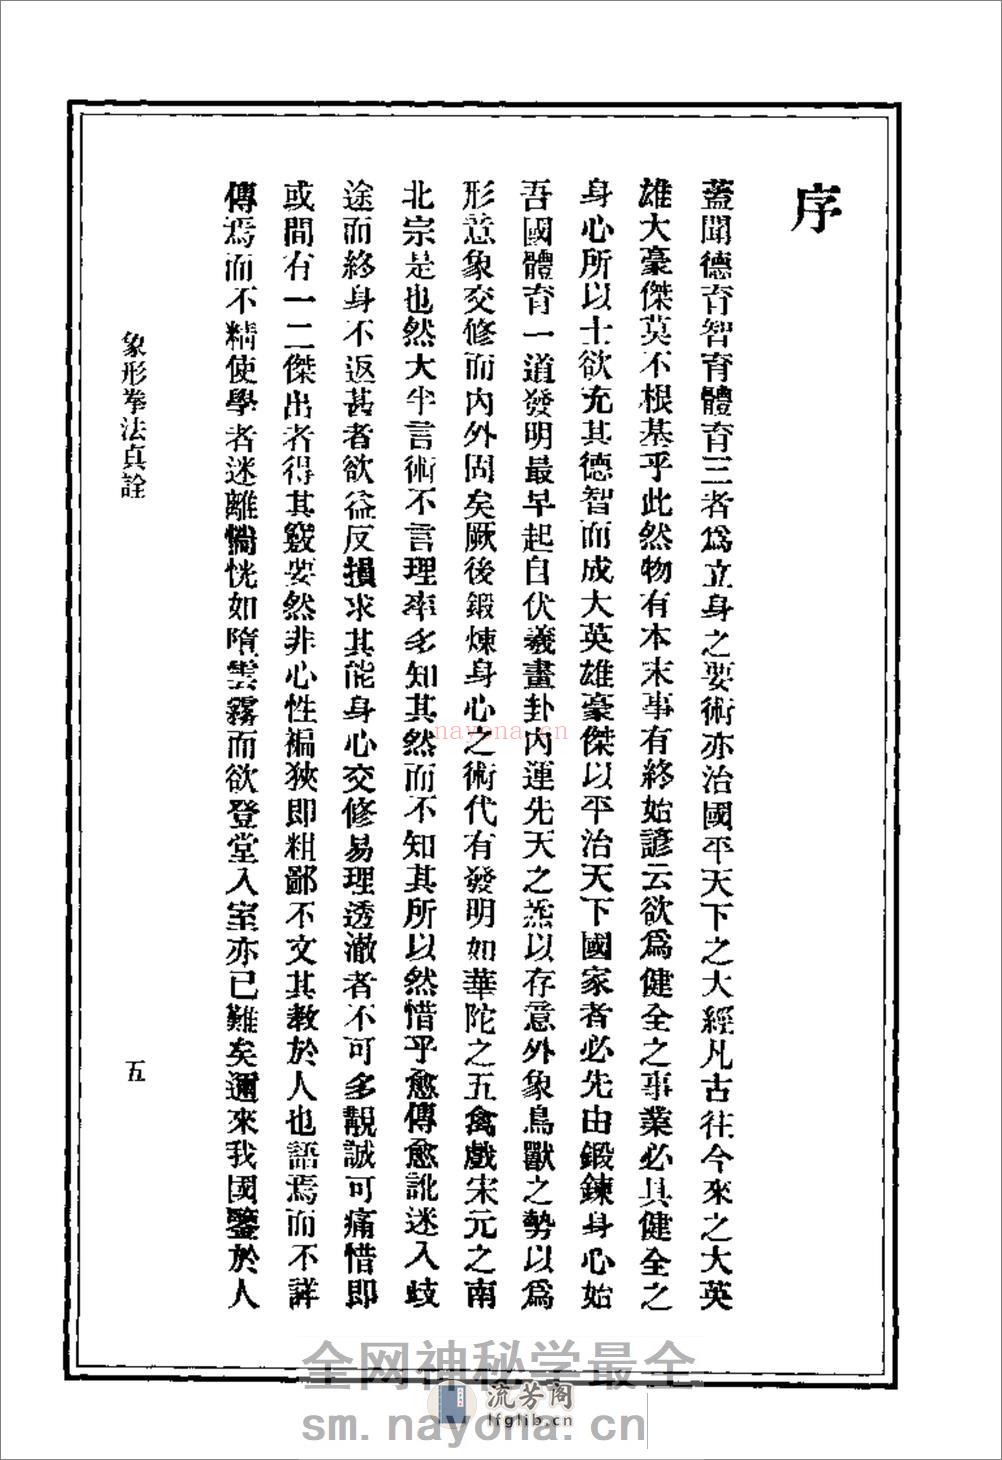 序
蓋聞德育智育體育三者爲立身之要術亦治國平天下之大經凡古往今來之大英
雄大豪傑莫不根基乎此然物有本末事有終始諺云欲爲健全之事業必具健全之
身心所以士欲充其德智而成大英雄豪傑以平治天下國家者必先由鍛鍊身心始
吾國體育一道發明最早起自伏羲畫卦內運先天之炁以存意外象鳥獸之勢以爲
形意象交修而內外固矣厥後鍛煉身心之術代有發明如華陀之五禽戲宋元之南
北宗是也然大半言術不言理率多知其然而不知其所以然惜乎愈傳愈訛迷入歧
途而終身不返甚者欲益反損求其能身心交修易理透澈者不可多覩誠可痛惜即
或間有一二傑出者得其竅要然非心性褊狹即粗鄙不文其教於人也語焉而不詳
傳焉而不精使學者迷離惝恍如墮雲霧而欲登堂入室亦已難矣邇來我國鑒於人
象形拳法真詮
五
nayona.cn
全网神秘学最全
流芳阁
lfglib.cn
sm.nayona.cn